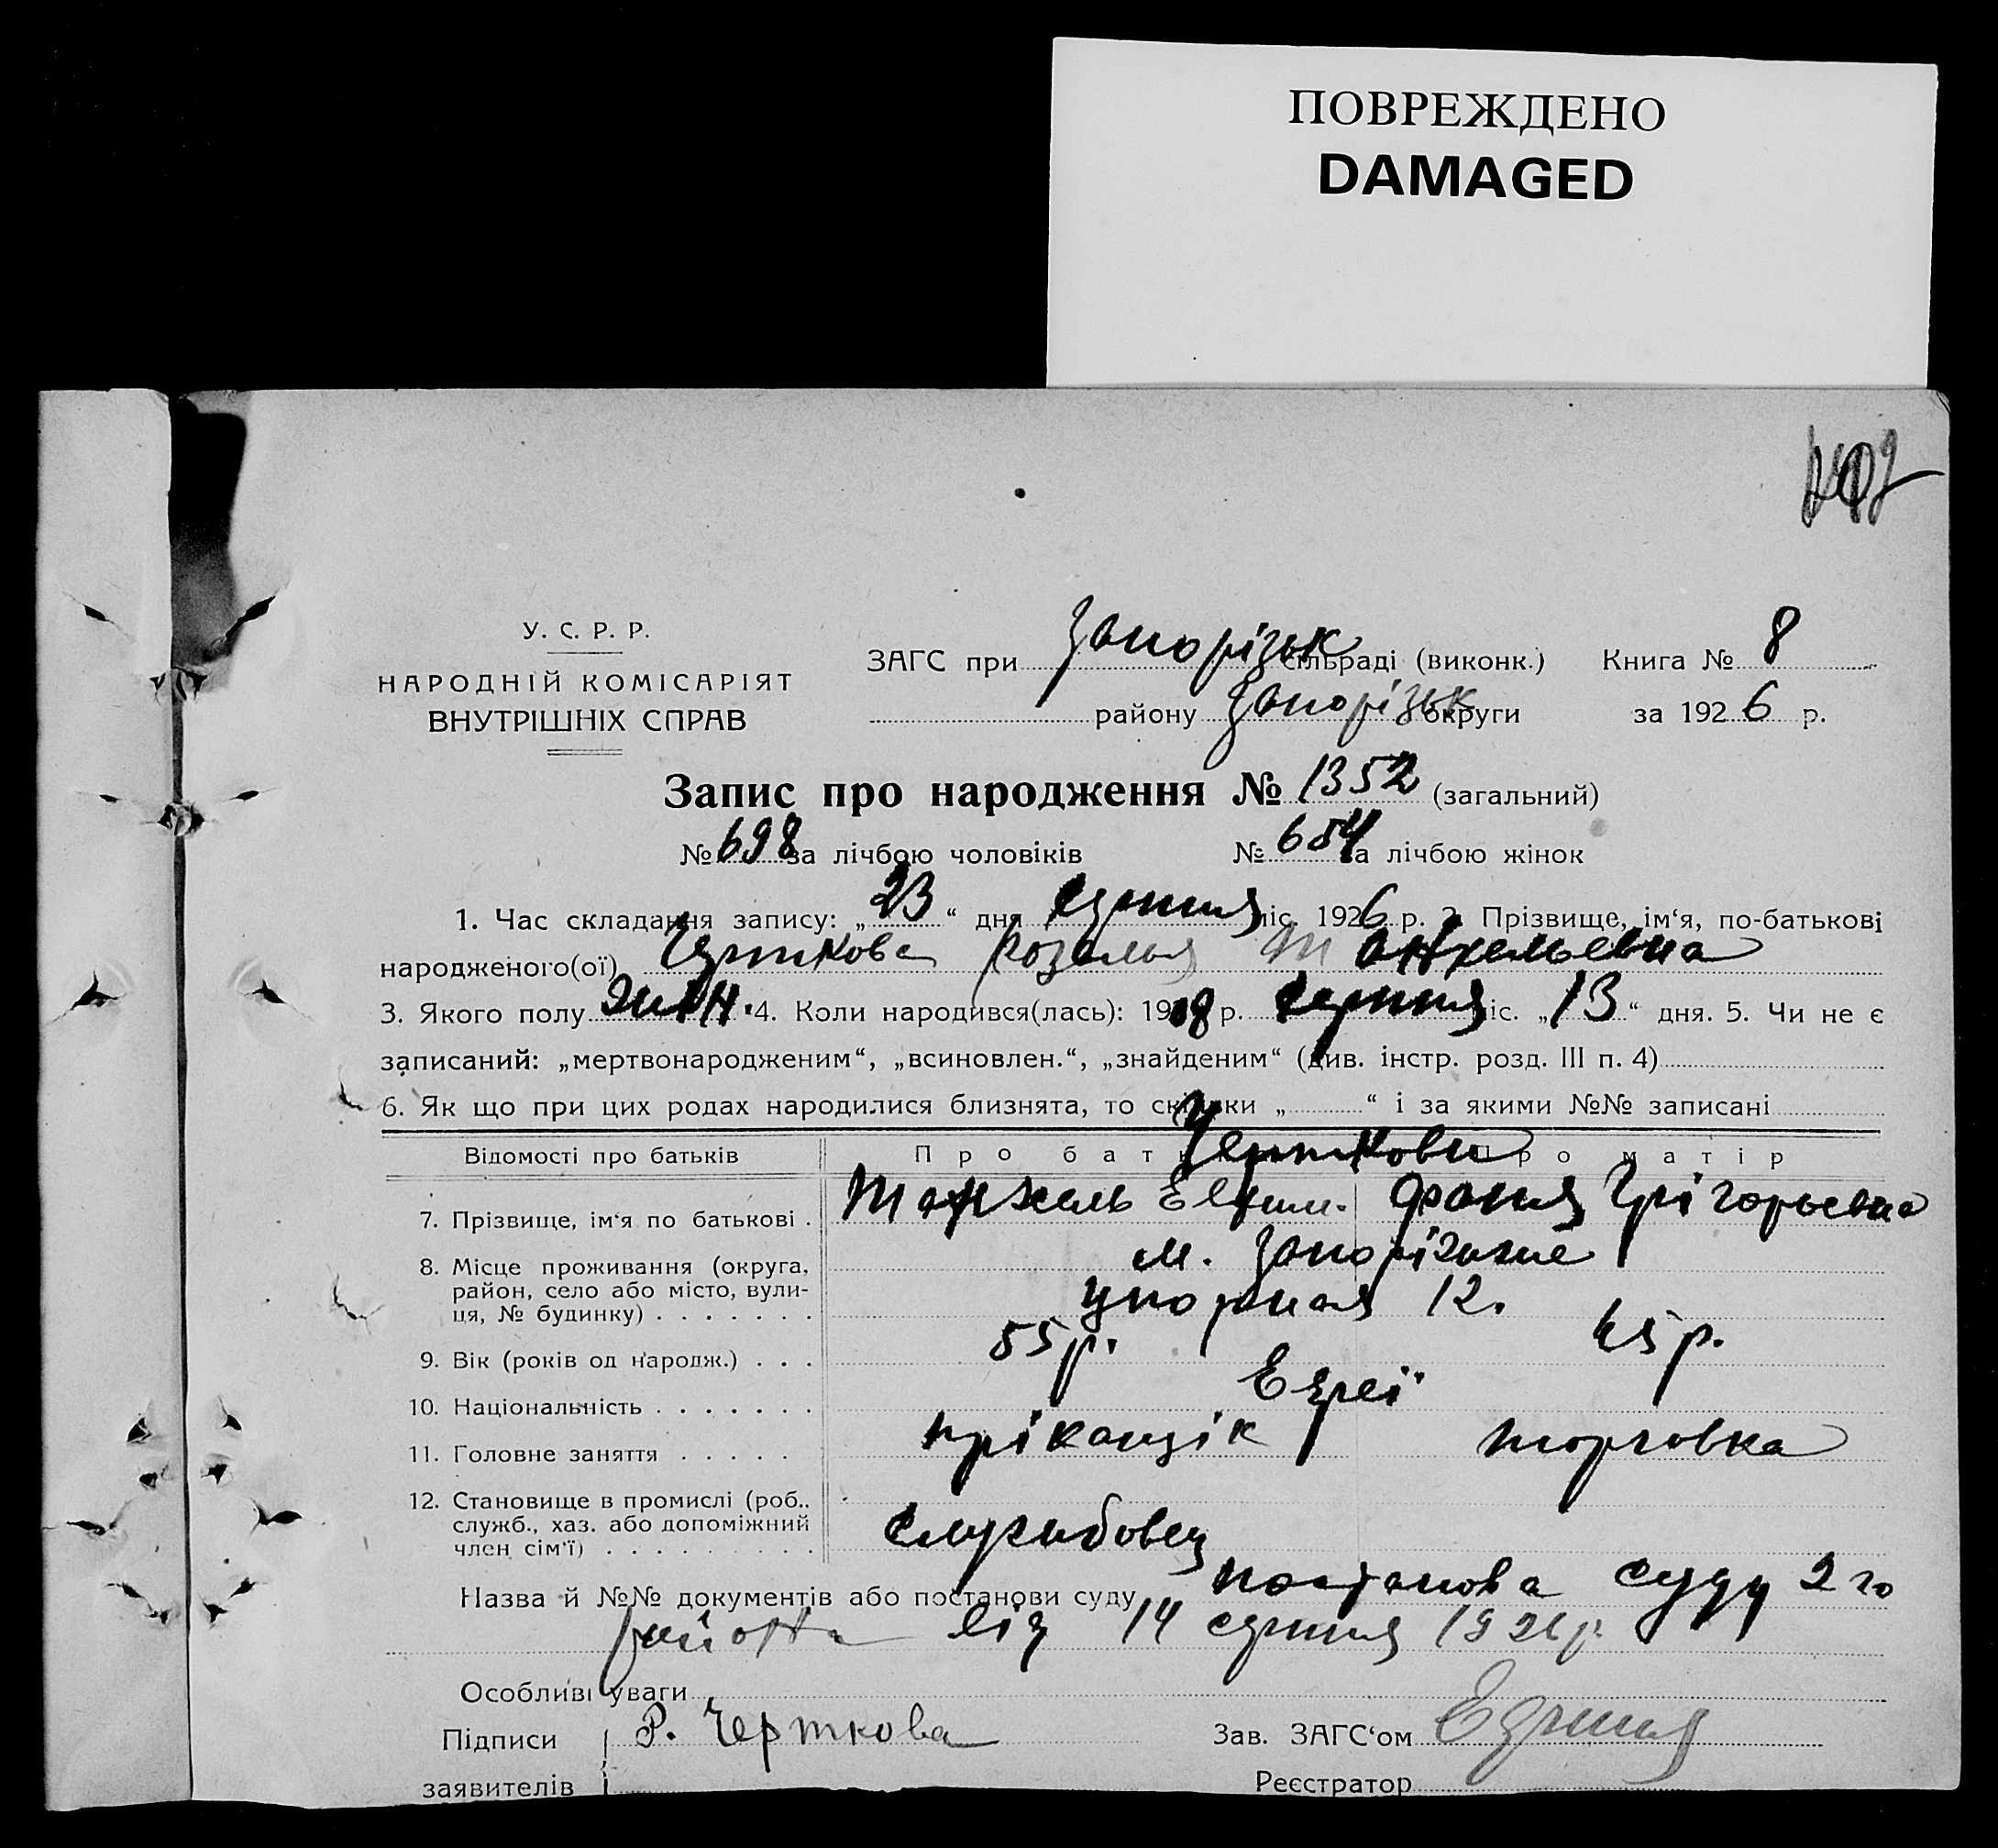 ПОВРЕЖДЕНО
DAMAGED
У. С. Р. Р.
НАРОДНІЙ КОМІСАРІЯТ
ВНУТРІШНІХ СПРАВ
ЗАГС при Запорізьк сільраді (виконк.) Книга № 8
району Запорізьк округи за 1926 р.
Запис про народження № 1352 (загальний)
№ 698 за лічбою чоловіків № 654 за лічбою жінок
1. Час складання запису: „23“ дня серпня міс. 1926 р. 2. Прізвище, ім‘я, по-батькові
народженого(ої) Черткова Розалья Танхельевна
3. Якого полу жін. 4. Коли народився(лась): 1908 р. серпня міс. „13“ дня. 5. Чи не є
записаний: „мертвонародженим“, „всиновлен.“, „знайденим“ (див. інстр. розд. III п. 4)
6. Як що при цих родах народилися близнята, то скільки „ “ і за якими №№ записані
Відомості про батьків Про батька Про матір
Черткови
7. Прізвище, ім‘я по батькові . Танхель Ефим. Фаня Грігорьевна
8. Місце проживання (округа, м. Запоріжже
район, село або місто, вули-
ця, № будинку) . . . . . . . 12.
9. Вік (років од народж.) . . . 55 р. 45 р.
10. Національність . . . . . . . Евреї
11. Головне заняття . . . . . пріказщік торговка
12. Становище в промислі (роб.,
служб., хаз. або допоміжний
член сім'ї) . . . . . . . . . Службовец
Назва й №№ документів або постанови суду постанова суду 2го
району від 14 серпня 1926 р.
Особливі уваги
Підписи Р. Черткова Зав. ЗАГС‘ом
заявителів Реєстратор